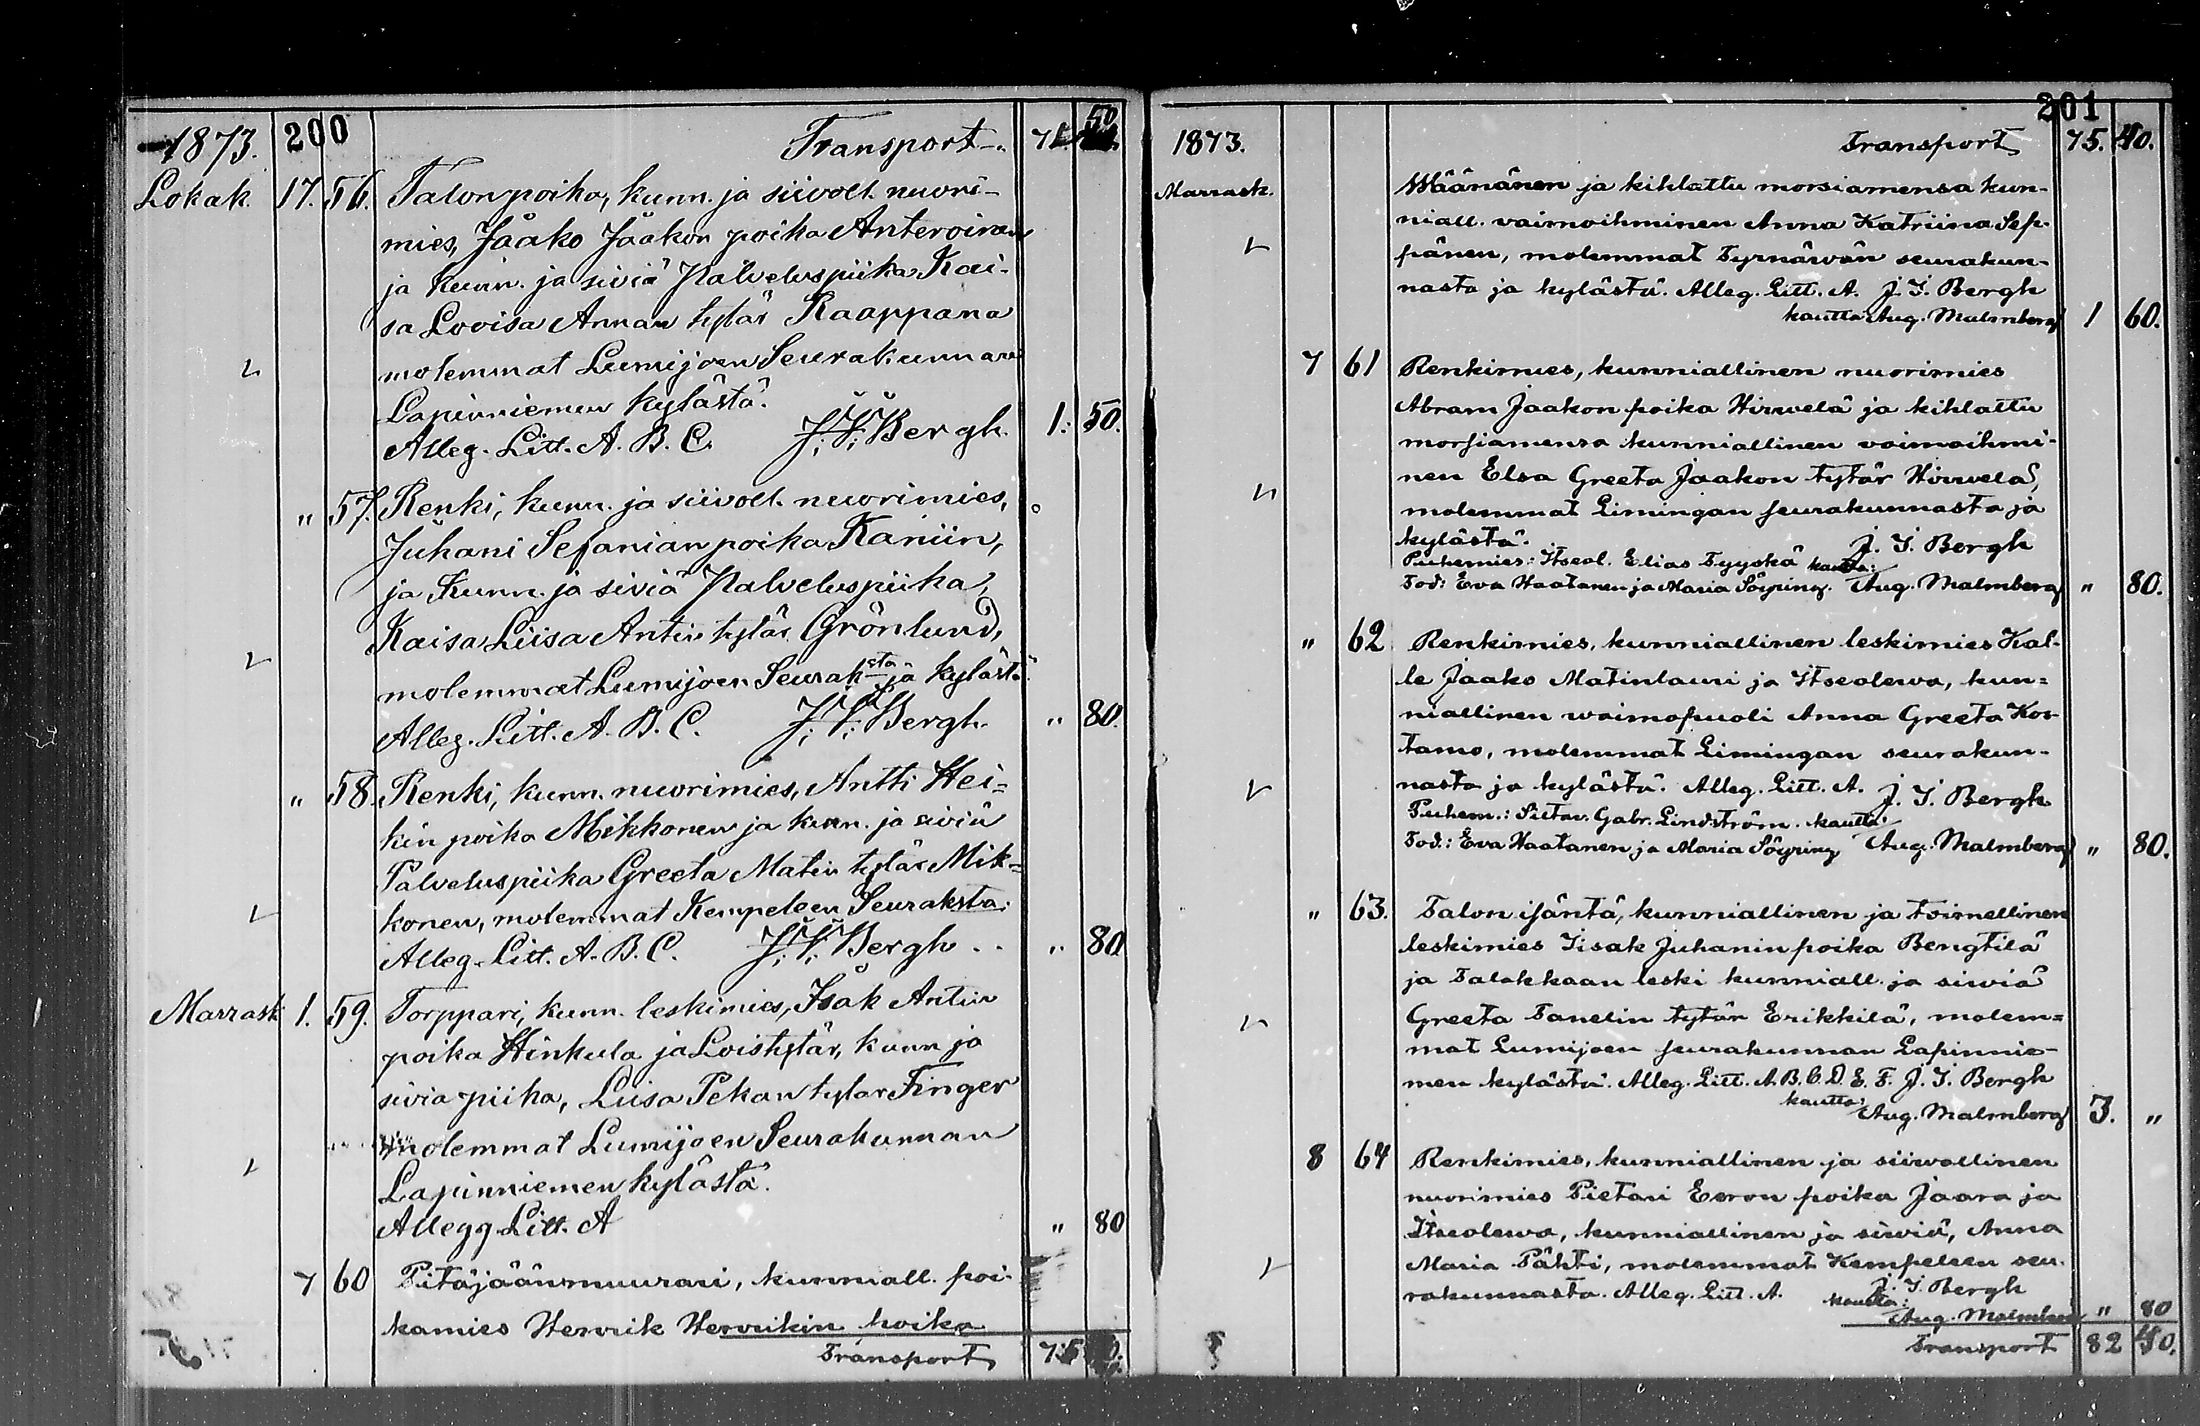 1873. 200 Transport 71. 50
Lokak. 17. 56. Talonpoika, kunn. ja siivoll. nuori-
mies, Jaako Jaakon poika Anteroinen
ja kunn. ja siviä Palveluspiika Kai-
sa Lovisa Annan tytär Kaappana
molemmat Lumijoen Seurakunnan
Lapinniemen kylästä.
Alleg. Litt. A. B. C. J. I. Bergh. 1: 50.
" 57. Renki, kunn. ja siivoll. nuorimies,
Juhani Sefanian poika Kaniin,
ja Kunn. ja siviä Palveluspiika,
Kaisa Liisa Antin tytär Grönlund,
molemmat Lumijoen Seurak-sta ja kylästä.
Alleg. Litt. A. B. C. J. I. Bergh. " 80.
" 58. Renki, kunn. nuorimies, Antti Hei=
kin poika Mikkonen ja kunn. ja siviä
Palveluspiika Greeta Matin tytär Mik=
konen, molemmat Kempeleen Seuraksta.
Alleg. Litt. A. B. C. J. I. Bergh. " 80
Marrask 1. 59. Torppari, kunn. leskimies, Isak Antin
poika Hinkula ja Loistytär, kunn ja
sivia piika, Liisa Pekan tytar Finger
molemmat Lumijoen Seurakunnan
Lapinniemen kylästä.
Allegg Litt. A " 80
7 60 Pitäjäänmuurari, kunniall. poi-
kamies Henrik Henrikin poika
Transport 75
201
1873. Transport 75. 40.
Marrask. Määnänen ja kihlattu morsiamensa kun-
niall. vaimoihminen Anna Katriina Sep-
pänen, molemmat Tyrnäwän seurakun-
nasta ja kylästä. Alleg. Litt. A. J. I. Bergh
kautta: Aug. Malmberg 1 60.
7 61 Renkimies, kunniallinen nuorimies
Abram Jaakon poika Hirwelä ja kihlattu
morsiamensa kunniallinen vaimoihmi-
nen Elsa Greeta Jaakon tytär Hirwelä,
molemmat Limingan seurakunnasta ja
kylästä. J. I. Bergh
Puhemies: Itseol. Elias Tyyskä kautta:
Tod: Eva Haatanen ja Maria Söyring. Aug. Malmberg " 80.
" 62 Renkimies, kunniallinen leskimies Kal-
le Jaako Matinlauri ja Itseolewa, kun=
niallinen waimopuoli Anna Greeta Kos-
tamo, molemmat Limingan seurakun-
nasta ja kylästä. Alleg. Litt. A. J. I. Bergh
Puhem.: Siltav. Gabr. Lindström. kautta:
Tod.: Eva Haatanen ja Maria Söyring Aug. Malmberg " 80.
" 63. Talon isäntä, kunniallinen ja toimellinen
leskimies Iisak Juhanin poika Bengtilä
ja Talokkaan leski kunniall. ja siwiä
Greeta Tanelin tytär Erikkilä, molem=
mat Lumijoen seurakunnan Lapinnie-
men kylästä. Alleg. Litt. A. B. C. D. E. F. J. I. Bergh
kautta: Aug. Malmberg 3. "
8 64 Renkimies, kunniallinen ja siiwollinen
nuorimies Pietari Eeron poika Jaara ja
Itseolewa, kunniallinen ja siwiä, Anna
Maria Pähti, molemmat Kempeleen seu-
rakunnasta. Alleg. Litt. A. J. I. Bergh
kautta: Aug. Malmberg " 80
Transport 82 40.